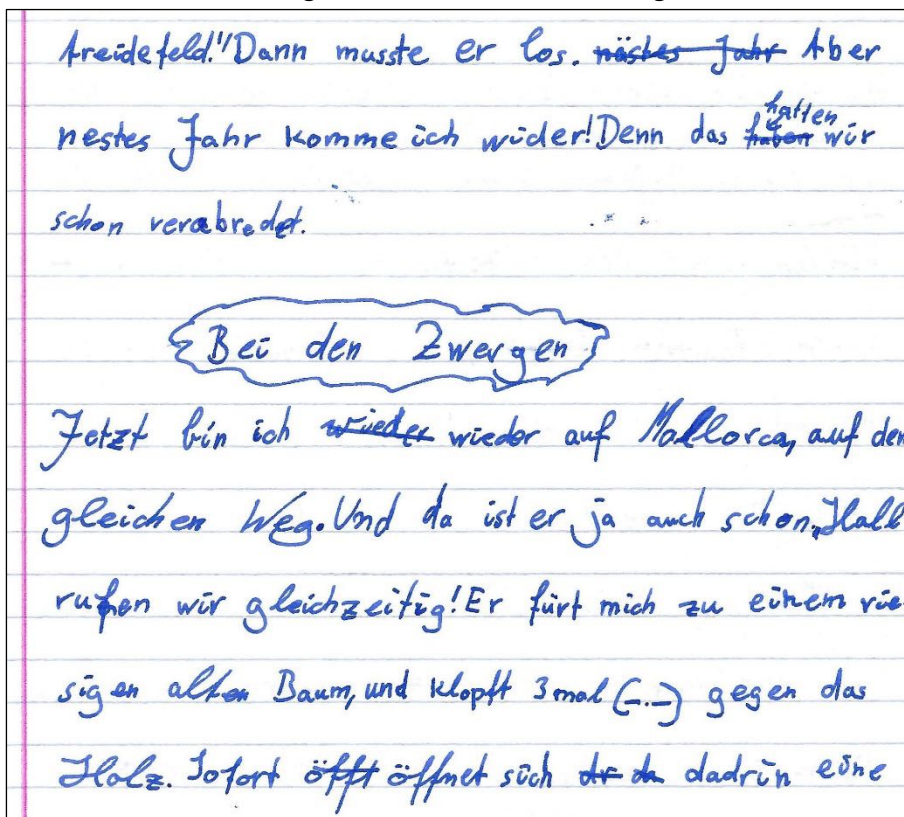 treidefeld."Dann musste er los. nästes Jahr Aber
nestes Jahr komme ich wider!Denn das haben hatten wir
schon verabredet.
Bei den Zwergen
Jetzt bin ich wieder wieder auf Mallorca, auf den
gleichen Weg. Und da ist er ja auch schon. "Hall
rufen wir gleichzeitig! Er fürt mich zu einem rie-
sigen alten Baum, und klopft 3 mal (-.-) gegen das
Holz. Sofort öfft öffnet sich dadrin eine